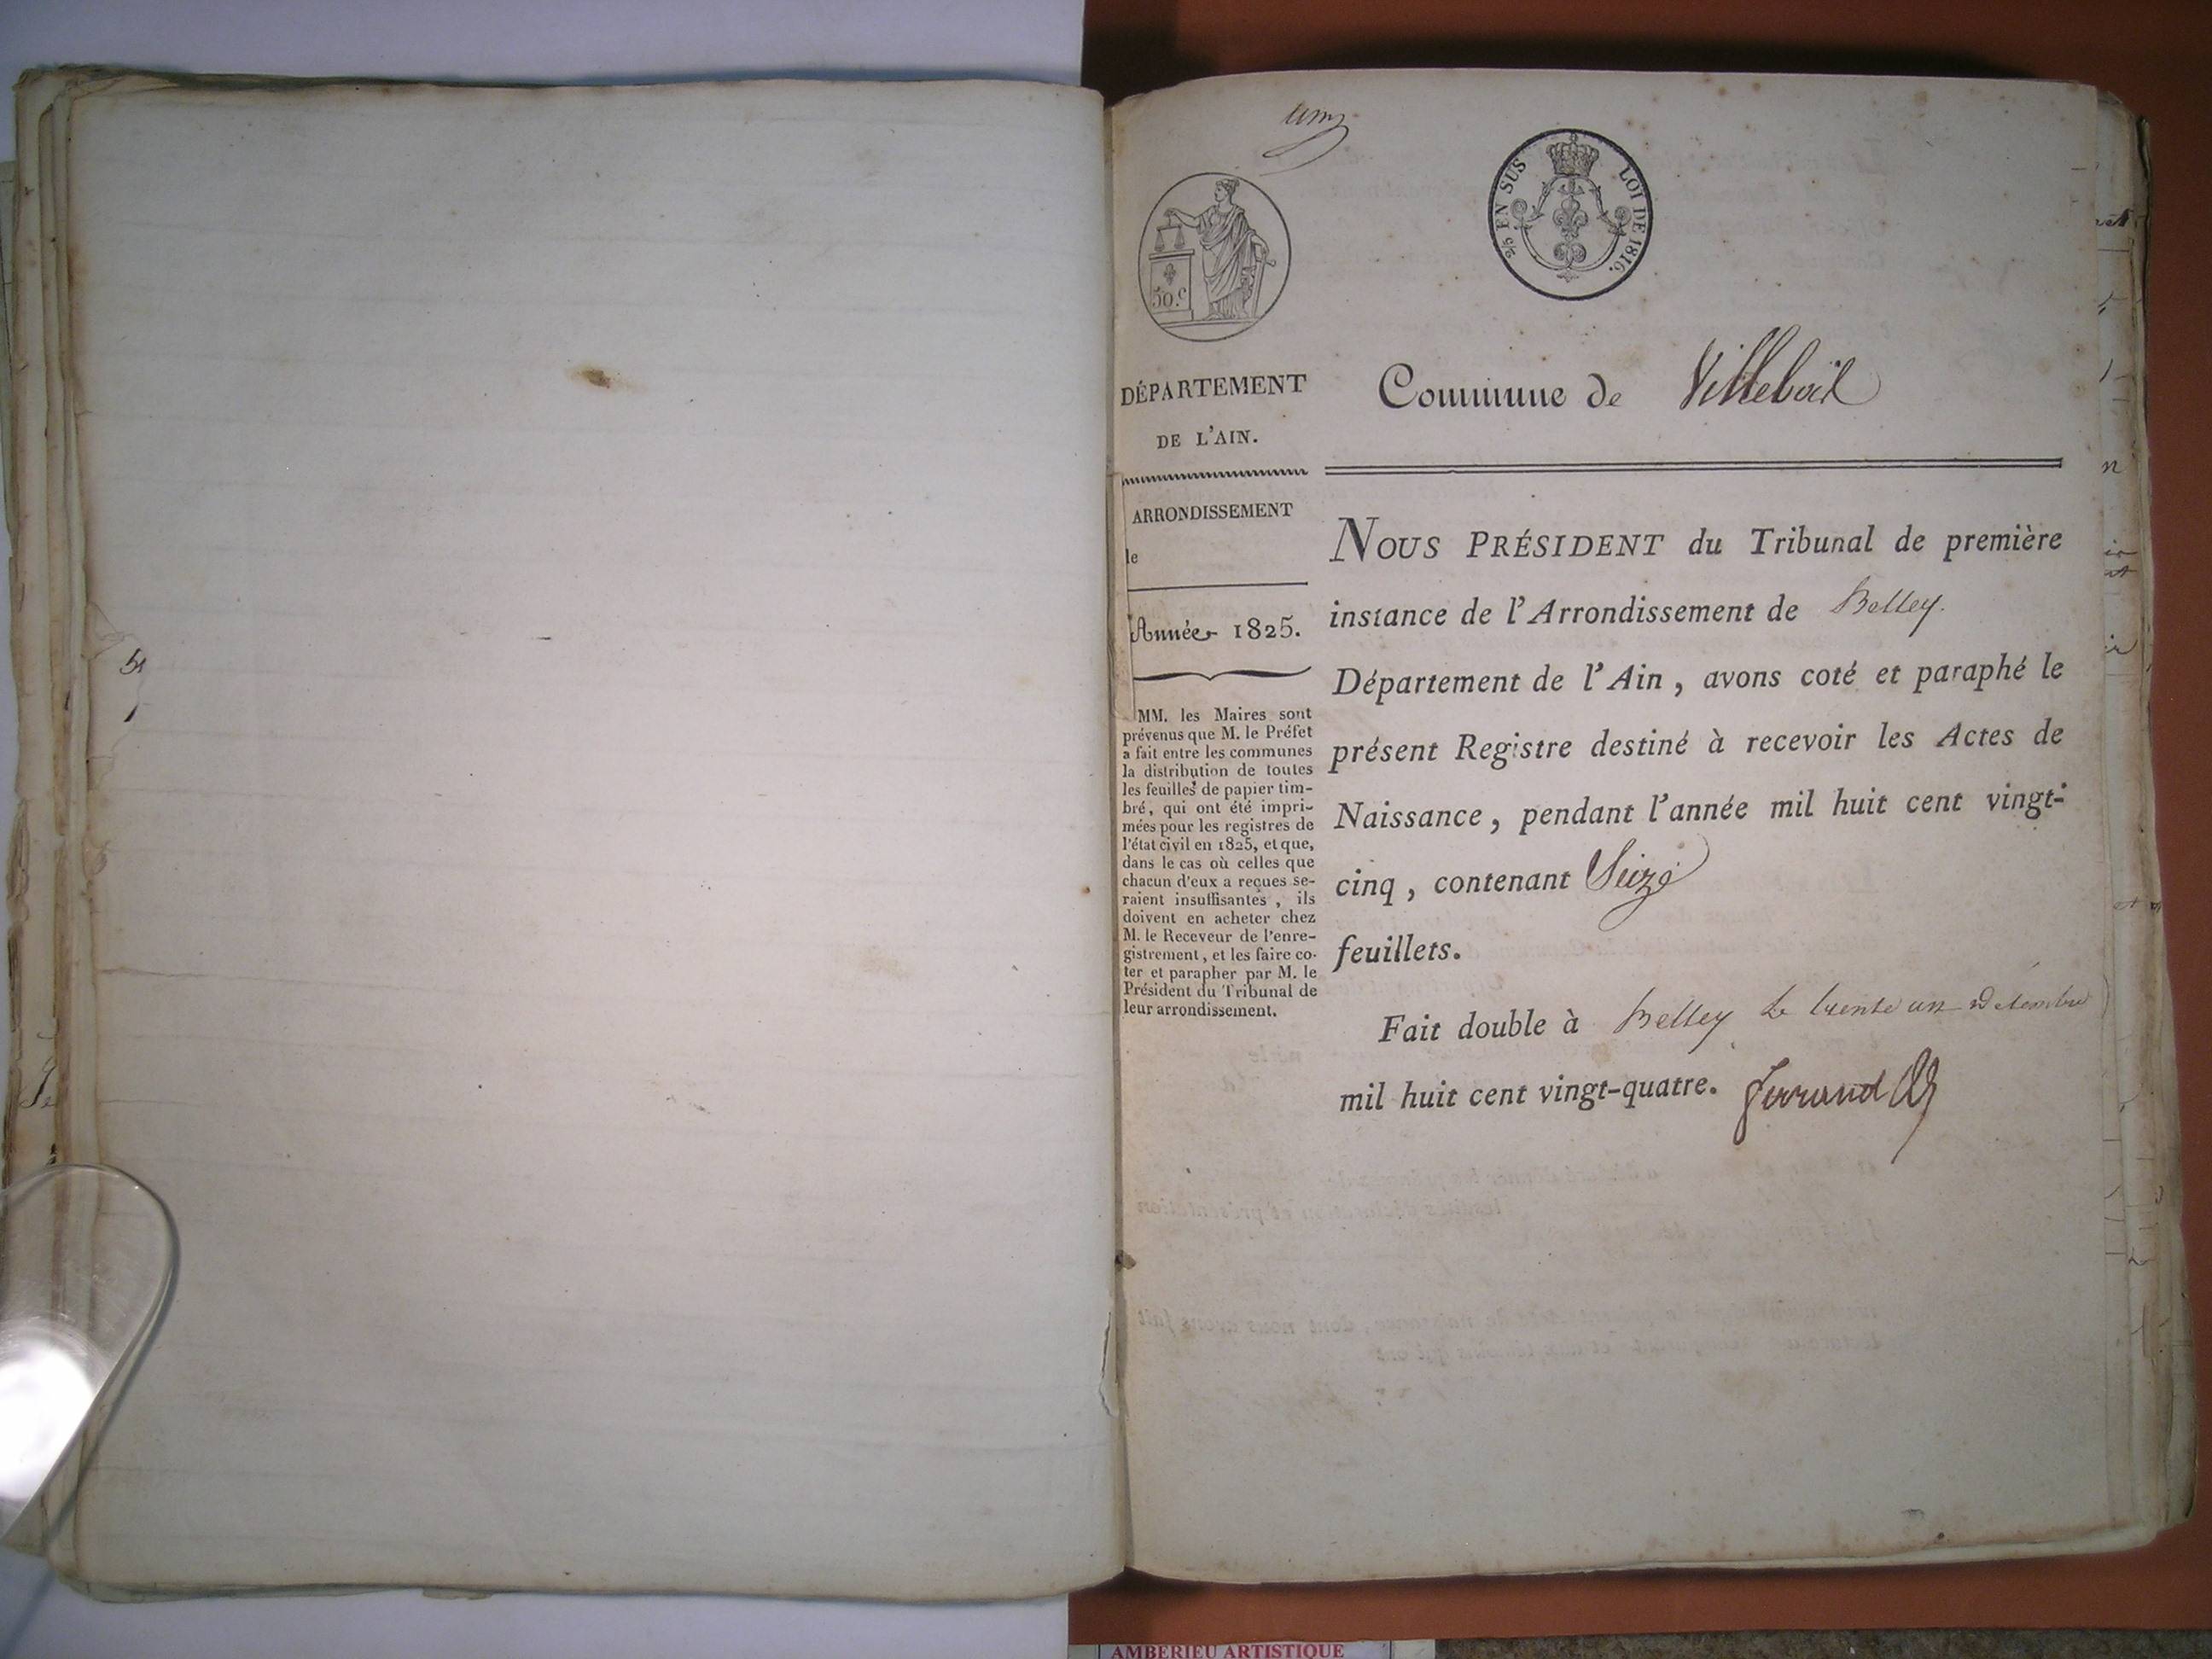 un
50.c
2/5 EN SUS LOI DE 1816.
DÉPARTEMENT
DE L'AIN.
ARRONDISSEMENT
de
Année 1825.
MM. les Maires sont
prévenus que M. le Préfet
a fait entre les communes
la distribution de toutes
les feuilles de papier tim-
bré, qui ont été impri-
mées pour les registres de
l'état civil en 1825, et que,
dans le cas où celles que
chacun d'eux a reçues se-
raient insuffisantes, ils
doivent en acheter chez
M. le Receveur de l'enre-
gistrement, et les faire co-
ter et parapher par M. le
Président du Tribunal de
leur arrondissement.
Commune de Villebois
NOUS PRÉSIDENT du Tribunal de première
instance de l'Arrondissement de Belley.
Département de l'Ain, avons coté et paraphé le
présent Registre destiné à recevoir les Actes de
Naissance, pendant l'année mil huit cent vingt-
cinq, contenant Seize
feuillets.
Fait double à Belley le trente un décembre
mil huit cent vingt-quatre.
AMBERIEU ARTISTIQUE